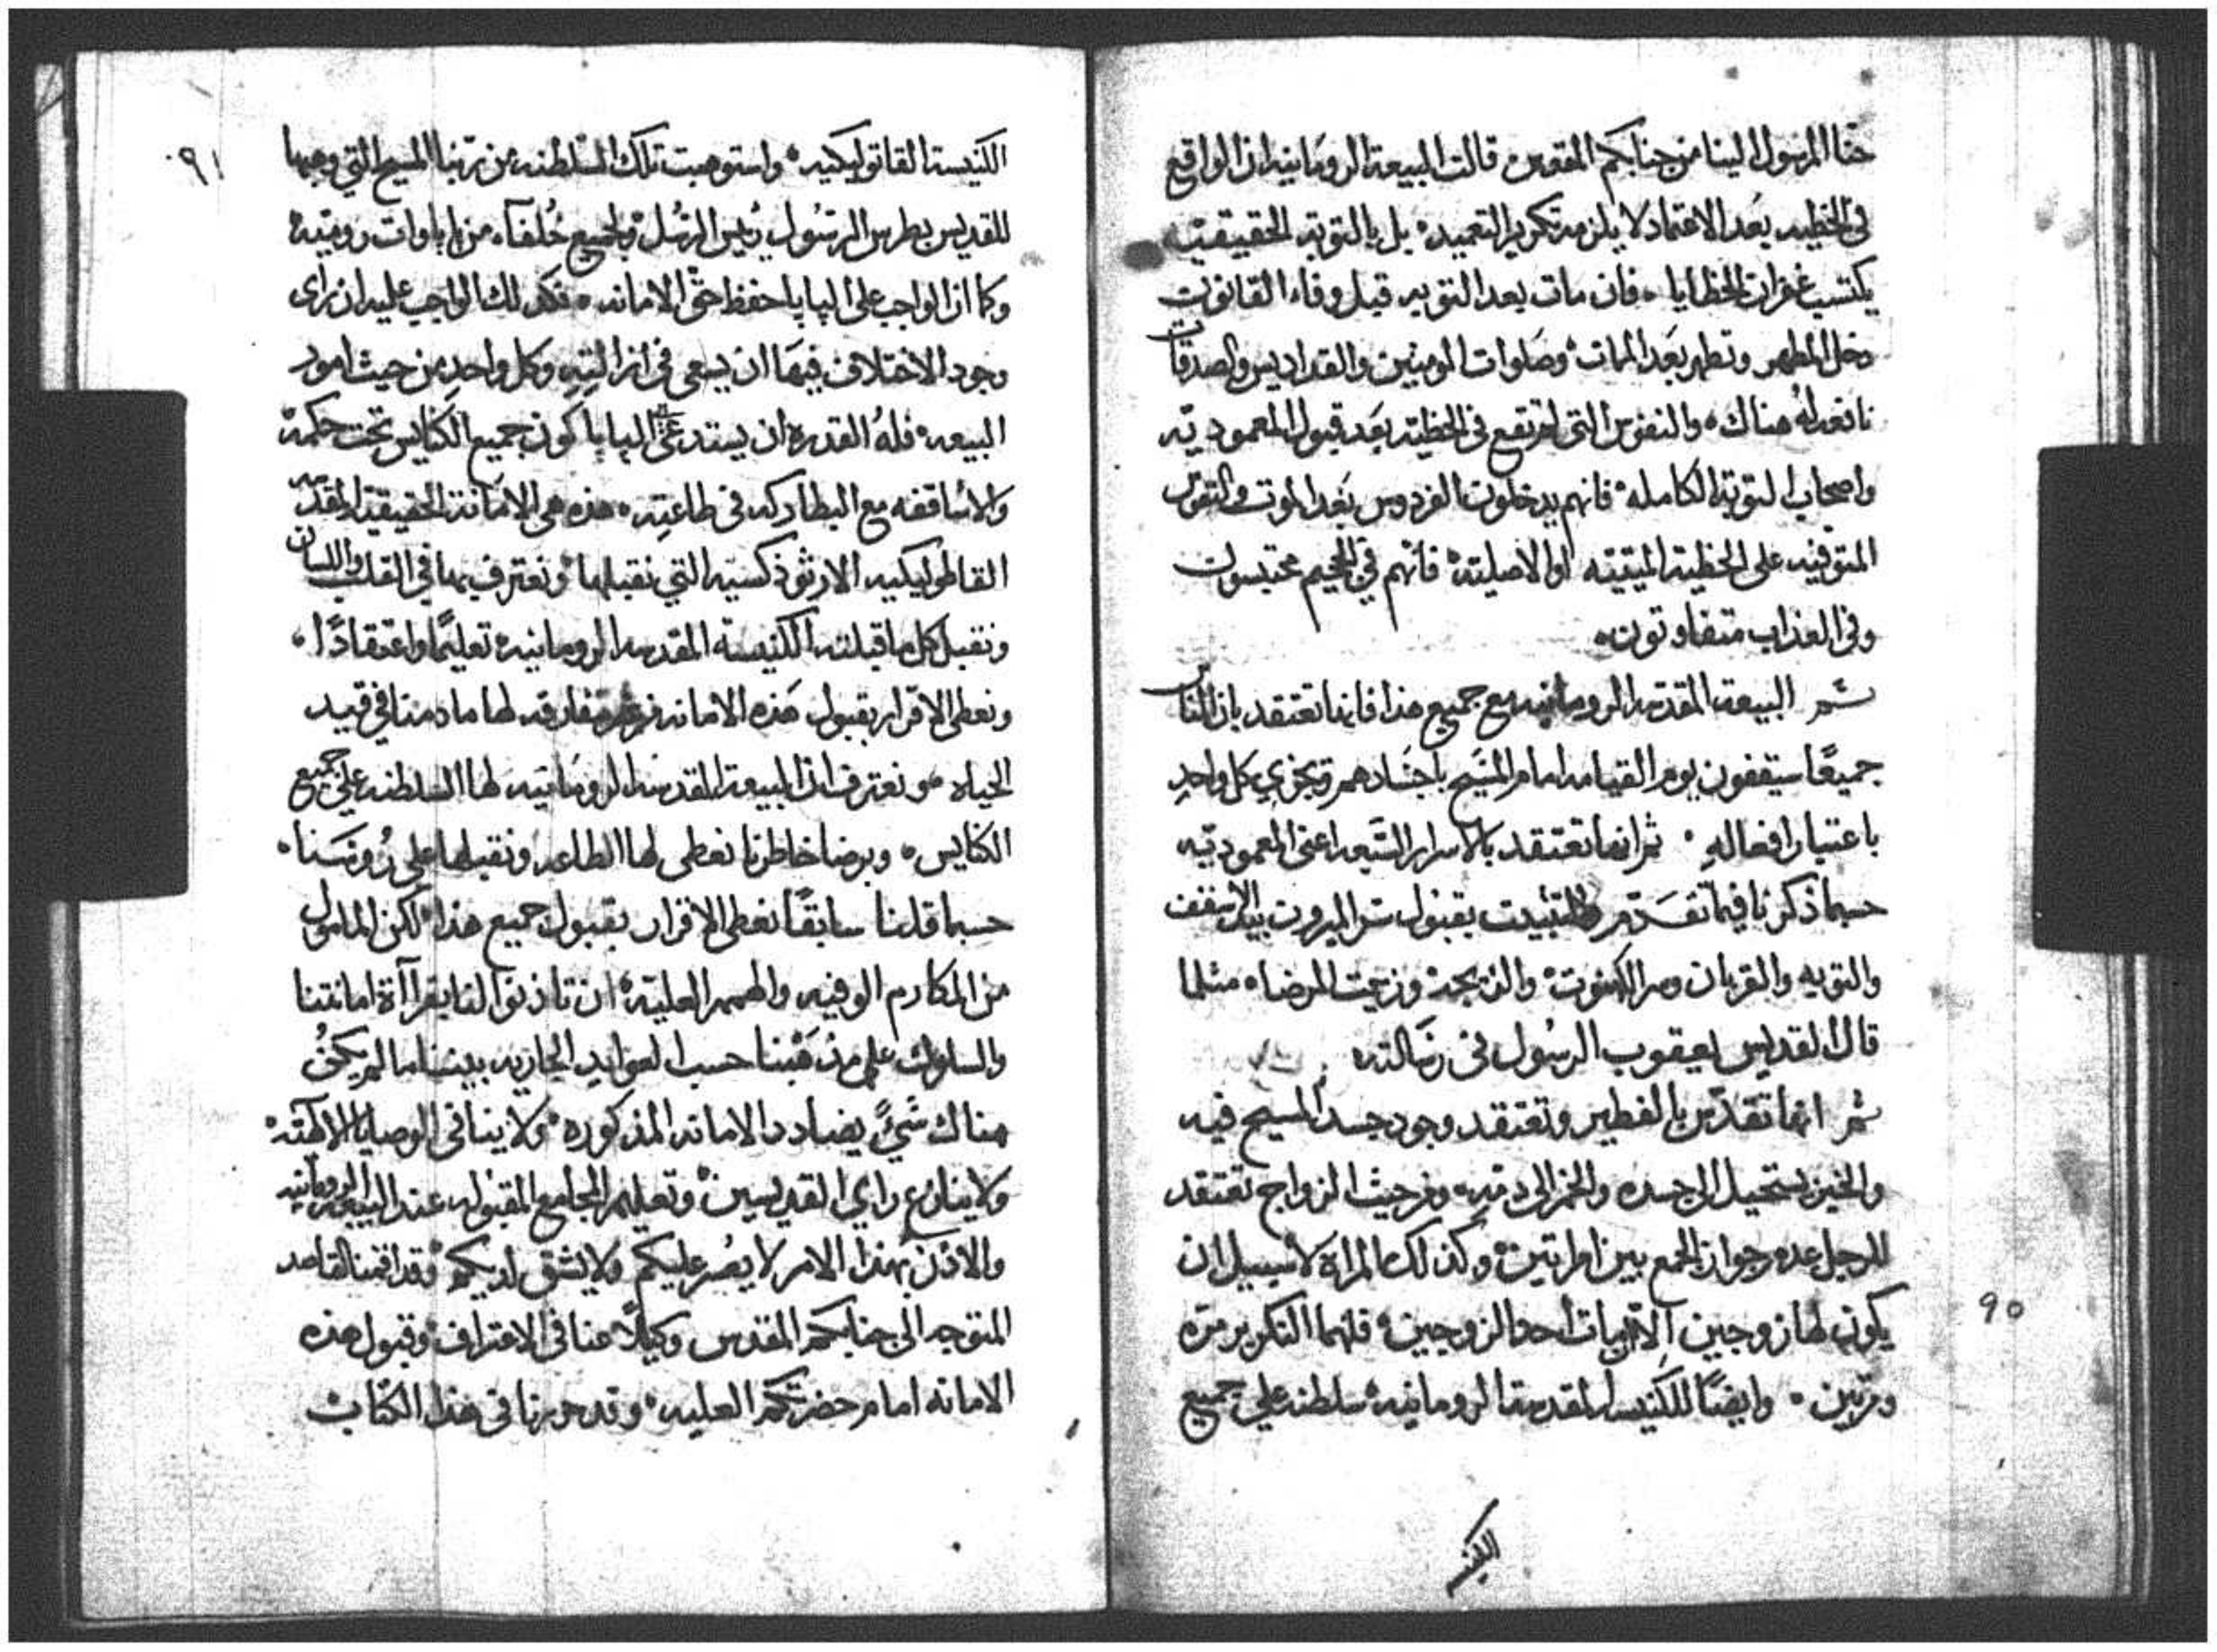 حنا المرسول الينا من جنابكم المقدس قالت البيعة الرومانيه ان الواقع
في الخطيه بعد الاعتماد لا يلزمه تكرير التعميد بل بالتوبه الحقيقيه
يكتسب غفران الخطايا فان مات بعد التوبه قبل وفاء القانون
دخل المطهر وتطهر بعد الممات وصلوات المومنين والقداديس والصدقات
نافعة له هناك والنفوس التي لم تقع في الخطيه بعد قبول المعموديه
واصحاب التوبه الكامله فانهم يدخلون الفردوس بعد الموت والنفوس
المتوفيه على الخطية المميته او الاصليه فانهم في الجحيم محتبسون
وفي العذاب متفاوتون
ثم البيعة المقدسه الرومانيه مع جميع هذا فانها تعتقد بان الناس
جميعًا سيقفون يوم القيامه امام المسيح باجسادهم ويجزي كل واحدٍ
باعتبار افعاله ثم انها تعتقد بالاسرار السبعه اعني المعموديه
حسبما ذكرنا فيما تقدم والتثبيت بقبول سر الميرون بيد الاسقف
والتوبه والقربان وسر الكهنوت والزيجه وزيت المرضاه مثلما
قال القديس يعقوب الرسول في رسالته
ثم انها تقدس بالفطير وتعتقد وجود جسد المسيح فيه
والخبز يستحيل الى جسده والخمر الى دمه ومن حيث الزواج تعتقد
للرجل عدم جواز الجمع بين امراتين وكذلك المراة لا سبيل ان
يكون لها زوجين الا ان مات احد الزوجين فلهما التكرير مرة
ومرتين وايضًا للكنيسه المقدسة الرومانيه سلطنه علي جميع
90
الكنيسة القاتوليكيه واستوهبت تلك السلطنه من ربنا المسيح التي وهبها
للقديس بطرس الرسول رئيس الرسل ولجميع خلفآه من باباوات روميه
وكما ان الواجب على البابا حفظ حق الامانه فكذلك الواجب عليه ان راى
وجود الاختلاف فيها ان يسعى في ازالته وكل واحد من حيث امور
البيعه فله القدره ان يستدعي البابا كون جميع الكنايس تحت حكمه
والاساقفه مع البطاركه في طاعته هذه هي الامانة الحقيقية المقدسه
القاطوليكيه الارثوذكسيه التي نقبلها ونعترف بها في القلب واللسان
ونقبل كل ما قبلته الكنيسة المقدسه الرومانيه تعليمًا واعتقادًا
ونعطي الاقرار بقبول هذه الامانه من غير مفارقه لها ما دمنا في قيد
الحياه ونعترف ان البيعة المقدسه الرومانيه لها السلطنه علي جميع
الكنايس وبرضا خاطرنا نعطي لها الطاعه ونقبلها على رُوسَنا
حسبما قلنا سابقًا نعطي الاقرار بقبول جميع هذا لكن المامول
من المكارم الوفيه والهمم العليه ان تاذنوا لنا بقراآة امانتنا
والسلوك على مذهبنا حسب العوايد الجاريه بيننا ما لم يكن
هناك شيً يضادد الامانه المذكوره ولا ينافي الوصايا الالهيه
ولا ينازع راي القديسين وتعليم المجامع المقبوله عند البيعه الرومانيه
والاذن بهذا الامر لا يضر عليكم ولا يشق لديكم وقد اقمنا القاصد
المتوجه الى جنابكم المقدس وكيلاً عنا في الاعتراف وقبول هذه
الامانه امام حضرتكم العليه وقد حررنا في هذا الكتاب
٩١